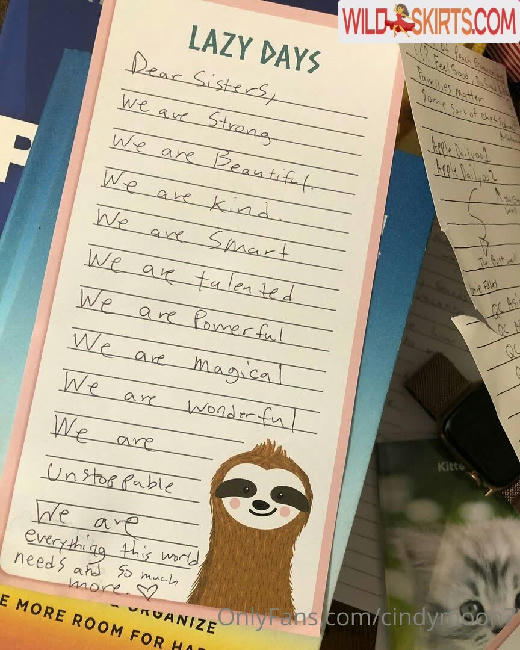 WILD SKIRTS.COM
LAZY DAYS
Dear Sisters,
We are Strong
We are Beautiful.
We are kind.
We are Smart
We are talented
We are Powerful
We are magical
We are wonderful
We are
Unstoppable
We are
everything this world
needs and so much
more. ♡
Families matter
Some sort of
Apple
Apple
Kitte
OnlyFans.com/cindymoon
& ORGANIZE
E MORE ROOM FOR HA
P